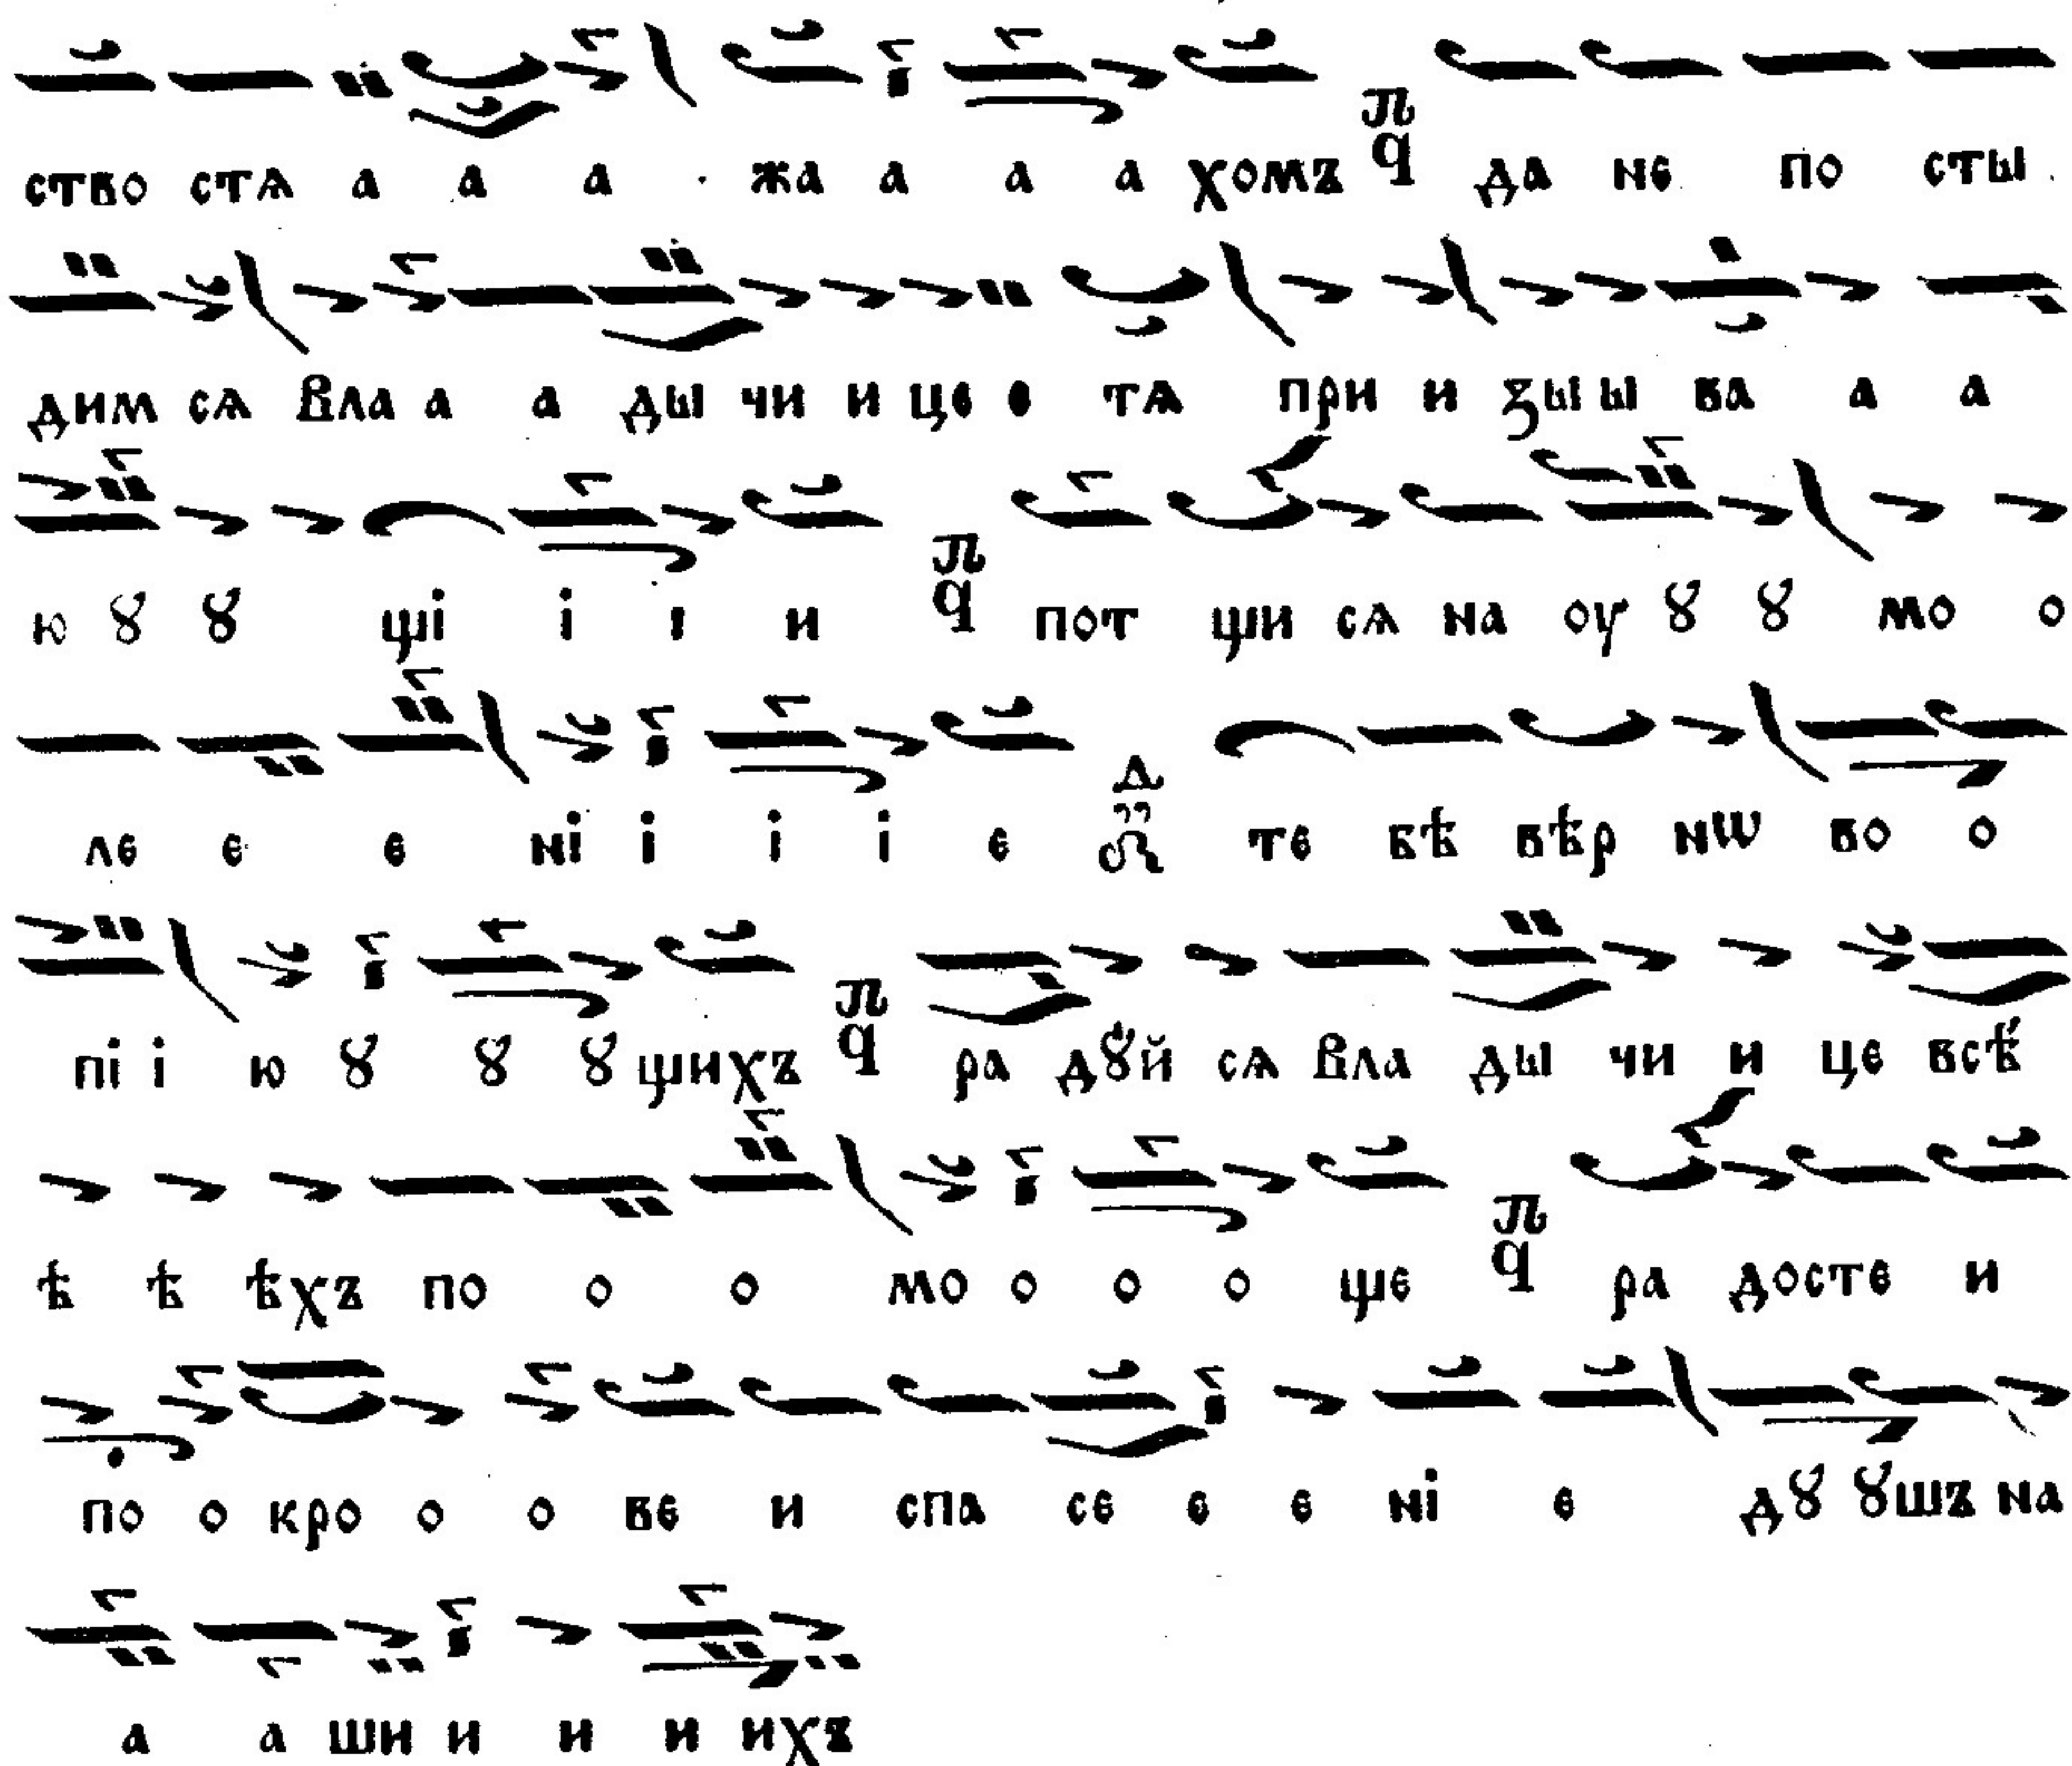 ство стѧ а а а жа а а а хомъ п̑ ҁ да не по сты
дим сѧ Вла а а ды чи и це е тѧ при и зы ы ва а а
ю ꙋ ꙋ щі і і и п̑ ҁ пот щи сѧ на оу ꙋ ꙋ мо о
ле е е ні і і і е Д те бѣ вѣр нѡ во о
пі і ю ꙋ ꙋ ꙋ щихъ п̑ ҁ ра дꙋй сѧ Вла ды чи и це всѣ
ѣ ѣ ѣхъ по о о мо о о о ще п̑ ҁ ра досте и
по о кро о о ве и спа се е е ні е дꙋ ꙋшъ на
а а ши и и и ихъ